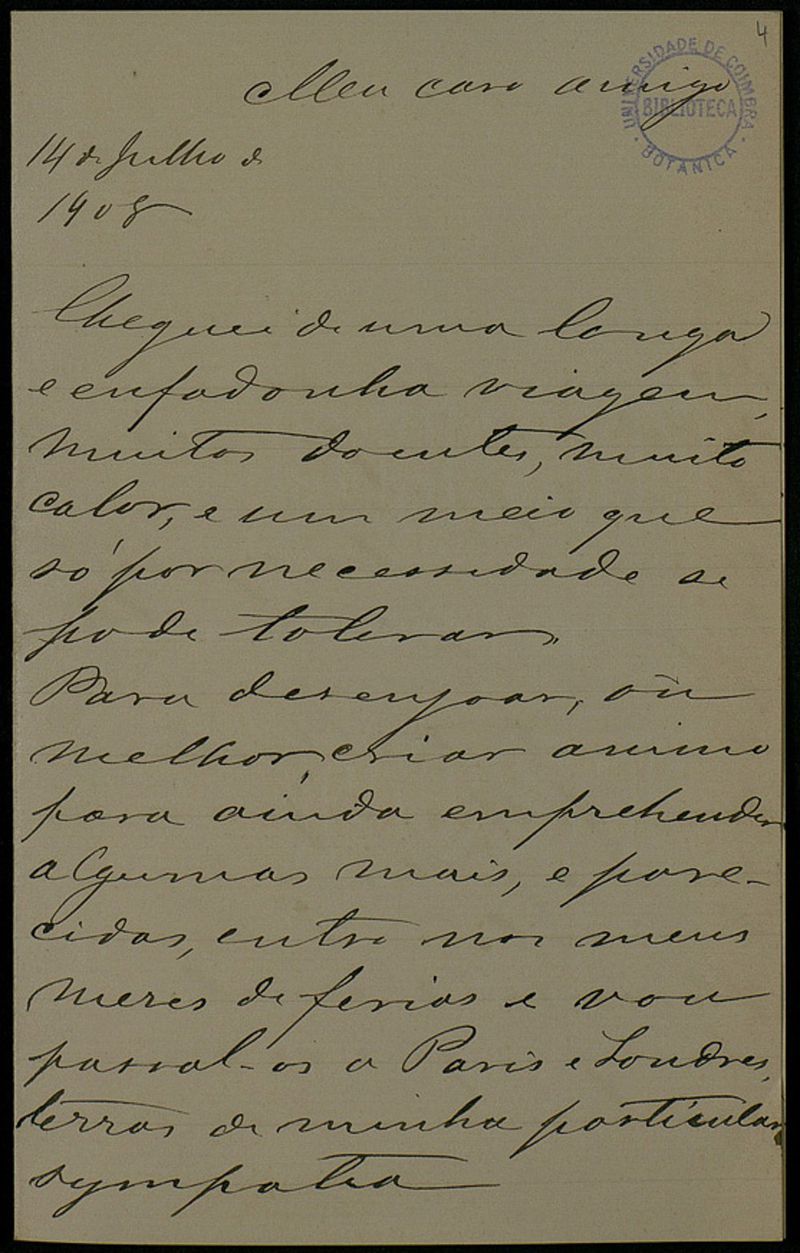 4
Meu caro amigo
UNIVERSIDADE DE COIMBRA
BIBLIOTECA
BOTANICA
14 de Julho de
1908
Cheguei de uma longa
e enfadonha viagem,
muitos doentes, muito
calor, e um meio que
só por necessidade se
pode tolerar.
Para desenjoar, ou
melhor, criar animo
para ainda emprehender
algumas mais, e pare-
cidas, entro nos meus
mezes de ferias e vou
passal-os a Paris e Londres,
terras de minha particular
sympatia